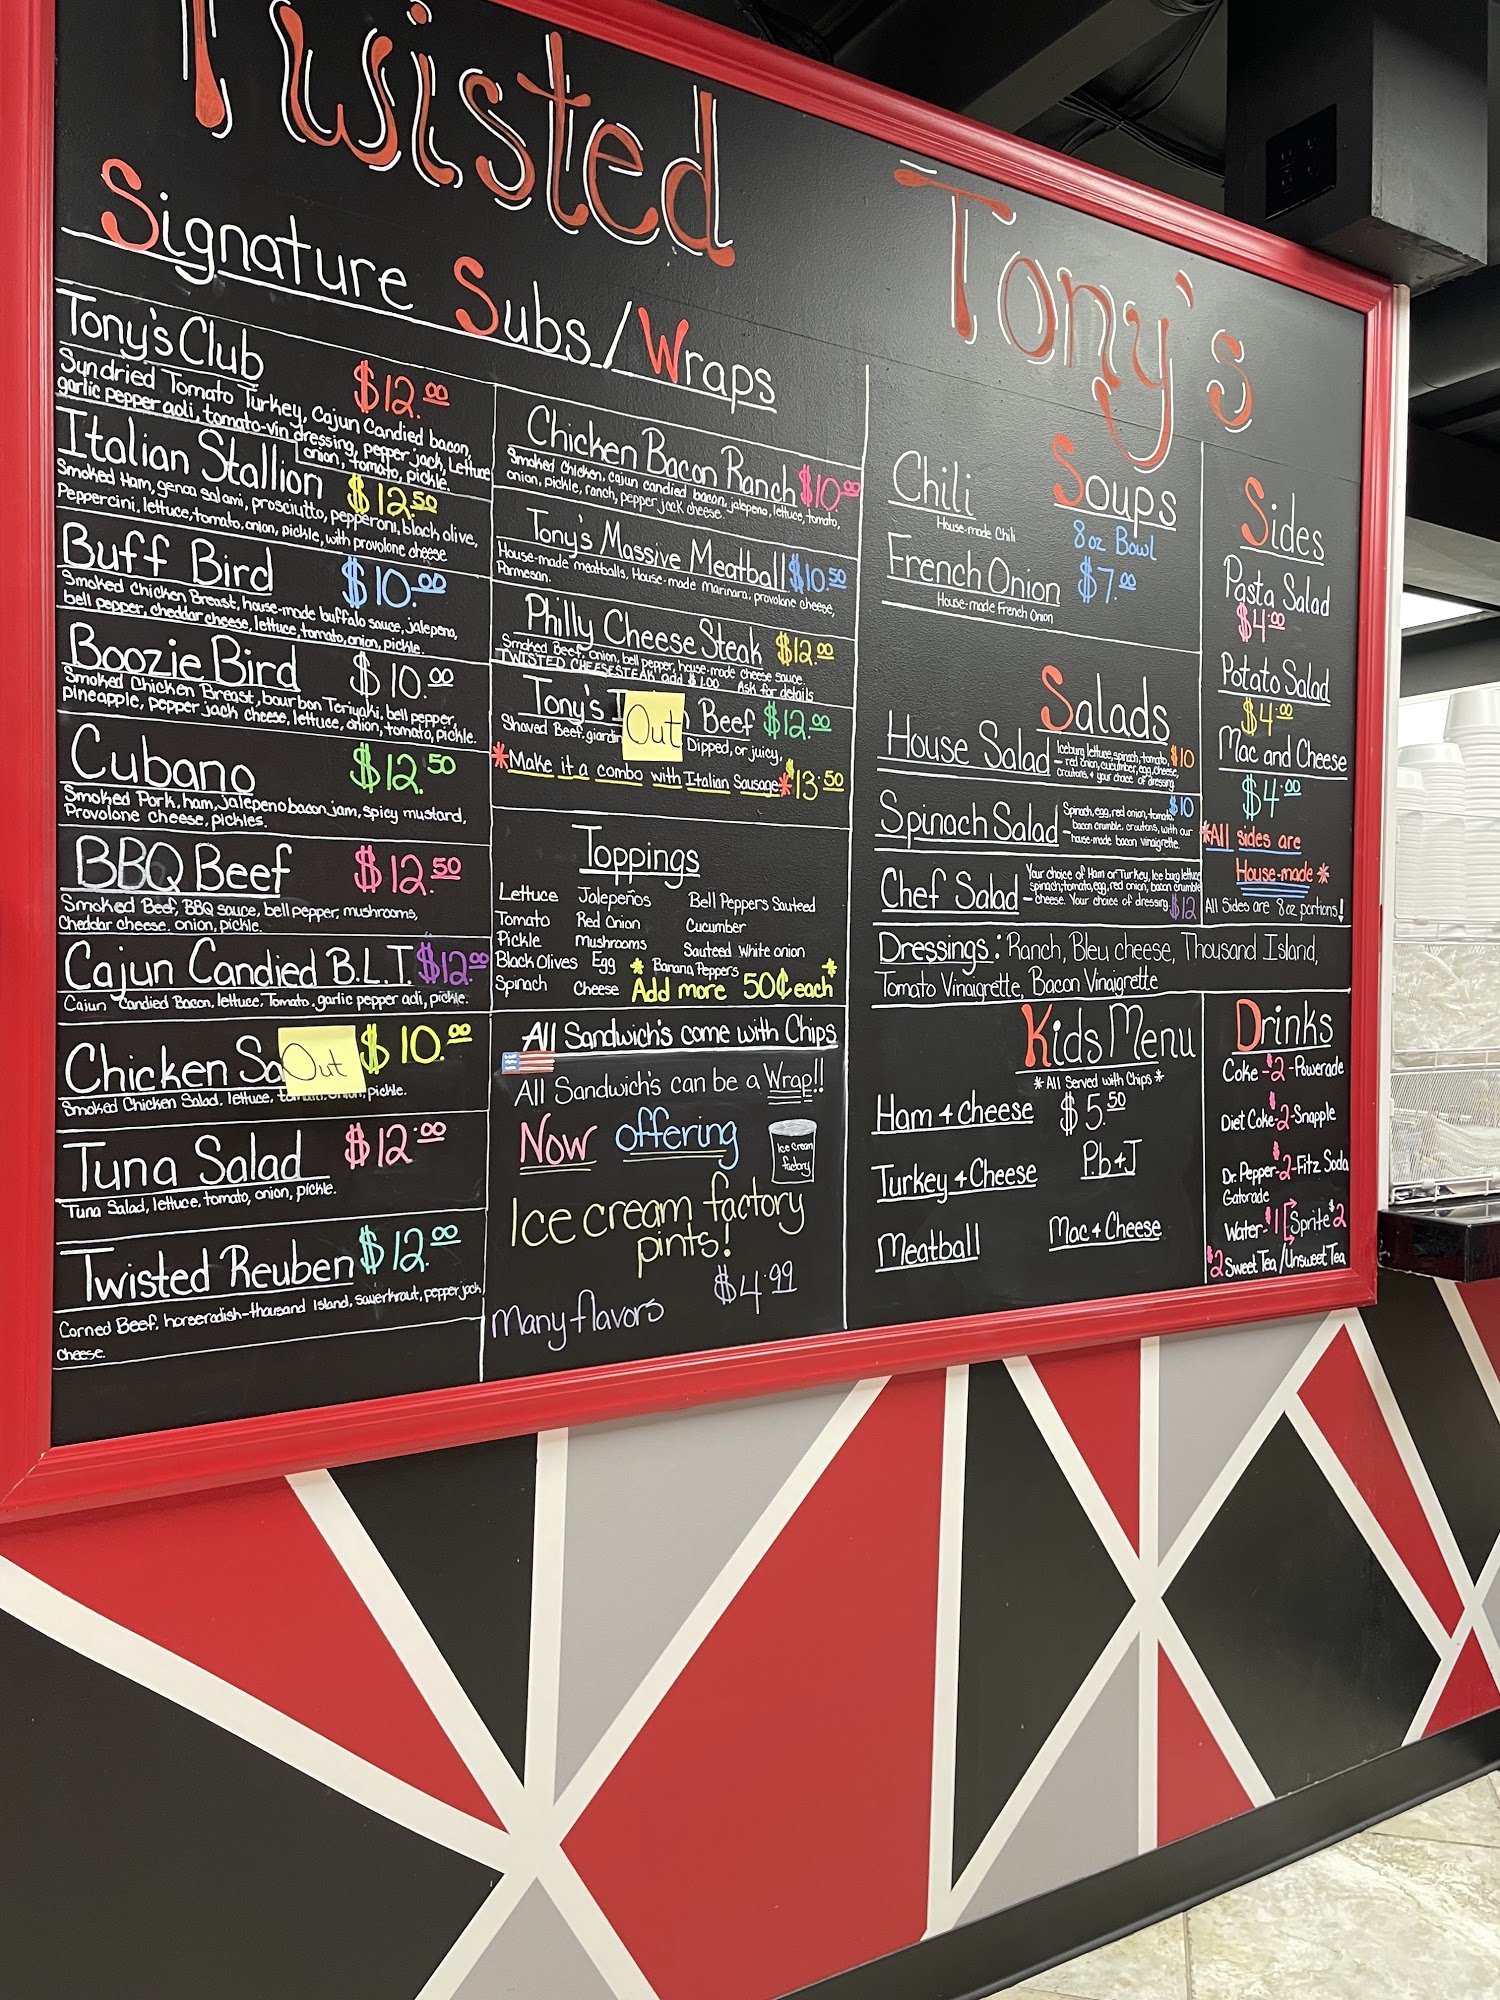 Twisted Tony's
Signature Subs/Wraps
Tony's Club $12.00
Sundried Tomato Turkey, Cajun Candied bacon,
garlic pepper aoli, tomato-vin dressing, pepper jack, Lettuce
onion, tomato, pickle.
Italian Stallion $12.50
Smoked Ham, genoa salami, prosciutto, pepperoni, black olive,
Peppercini, lettuce, tomato, onion, pickle, with provolone cheese
Buff Bird $10.00
Smoked Chicken Breast, house-made buffalo sauce, jalepeno,
bell pepper, cheddar cheese, lettuce, tomato, onion, pickle.
Boozie Bird $10.00
Smoked Chicken Breast, bourbon Teriyaki, bell pepper,
pineapple, pepper jack cheese, lettuce, onion, tomato, pickle.
Cubano $12.50
Smoked Pork, ham, jalepeno bacon jam, spicy mustard,
Provolone cheese, pickles.
BBQ Beef $12.50
Smoked Beef, BBQ sauce, bell pepper, mushrooms,
Cheddar cheese, onion, pickle.
Cajun Candied B.L.T. $12.00
Cajun Candied Bacon, lettuce, Tomato, garlic pepper aoli, pickle.
Chicken Sa Out $10.00
Smoked Chicken Salad, lettuce, tomato, onion, pickle.
Tuna Salad $12.00
Tuna Salad, lettuce, tomato, onion, pickle.
Twisted Reuben $12.00
Corned Beef, horseradish-thousand Island, sauerkraut, pepper jack
cheese.
Chicken Bacon Ranch $10.00
Smoked Chicken, cajun candied bacon, jalepeno, lettuce, tomato,
onion, pickle, ranch, pepper jack cheese.
Tony's Massive Meatball $10.50
House-made meatballs, House-made Marinara, provolone cheese,
Parmesan.
Philly Cheese Steak $12.00
Smoked Beef, onion, bell pepper, house-made cheese sauce.
TWISTED CHEESESTEAK add $1.00 Ask for details
Tony's Out Beef $12.00
Shaved Beef, giardin Dipped, or juicy,
*Make it a combo with Italian Sausage* $13.50
Toppings
Lettuce Jalepeños Bell Peppers Sauteed
Tomato Red Onion Cucumber
Pickle Mushrooms Sauteed White onion
Black Olives Egg * Banana Peppers *
Spinach Cheese Add more 50¢ each
All Sandwich's come with Chips
All Sandwich's can be a Wrap!!
Now offering
Ice Cream factory
Ice cream factory
pints!
$4.99
Many flavors
Soups
8oz Bowl
$7.00
Chili
House-made Chili
French Onion
House-made French Onion
Salads
House Salad
Iceburg lettuce, spinach, tomato, $10
- red onion, cucumber, egg, cheese,
croutons, + your choice of dressing
Spinach Salad
Spinach, egg, red onion, tomato, $10
- bacon crumble, croutons, with our
house-made bacon vinaigrette.
Chef Salad
Your choice of Ham or Turkey, Ice burg lettuce
spinach, tomato, egg, red onion, bacon crumble
- cheese. Your choice of dressing. $12
Sides
Pasta Salad
$4.00
Potato Salad
$4.00
Mac and Cheese
$4.00
*All sides are
House-made*
All Sides are 8oz portions!
Dressings: Ranch, Bleu cheese, Thousand Island,
Tomato Vinaigrette, Bacon Vinaigrette
Kids Menu
*All Served with Chips*
Ham + Cheese $5.50
Turkey + Cheese P.b+J
Meatball Mac + Cheese
Drinks
Coke - $2 - Powerade
Diet Coke - $2 - Snapple
Dr. Pepper - $2 - Fitz Soda
Gatorade
Water - $1 [Sprite $2
$2 Sweet Tea/Unsweet Tea